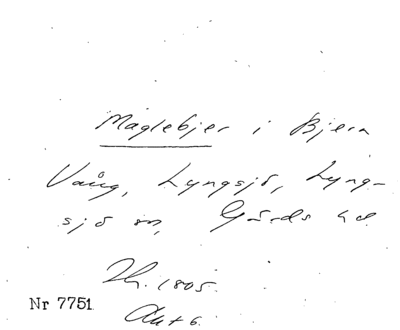 Måglebjer i Bjera
Vång, Lyngsjö, Lyng-
sjö sn, Gärds hd
Zh. 1805.
Nr 7751
Akt 6.